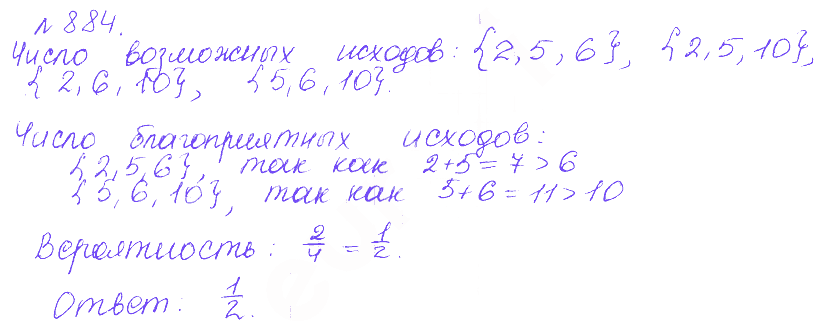 № 884.
Число возможных исходов: {2, 5, 6}, {2, 5, 10},
{2, 6, 10}, {5, 6, 10}.
Число благоприятных исходов:
{2, 5, 6}, так как 2+5=7>6
{5, 6, 10}, так как 5+6=11>10
Вероятность: 2/4 = 1/2.
Ответ: 1/2.